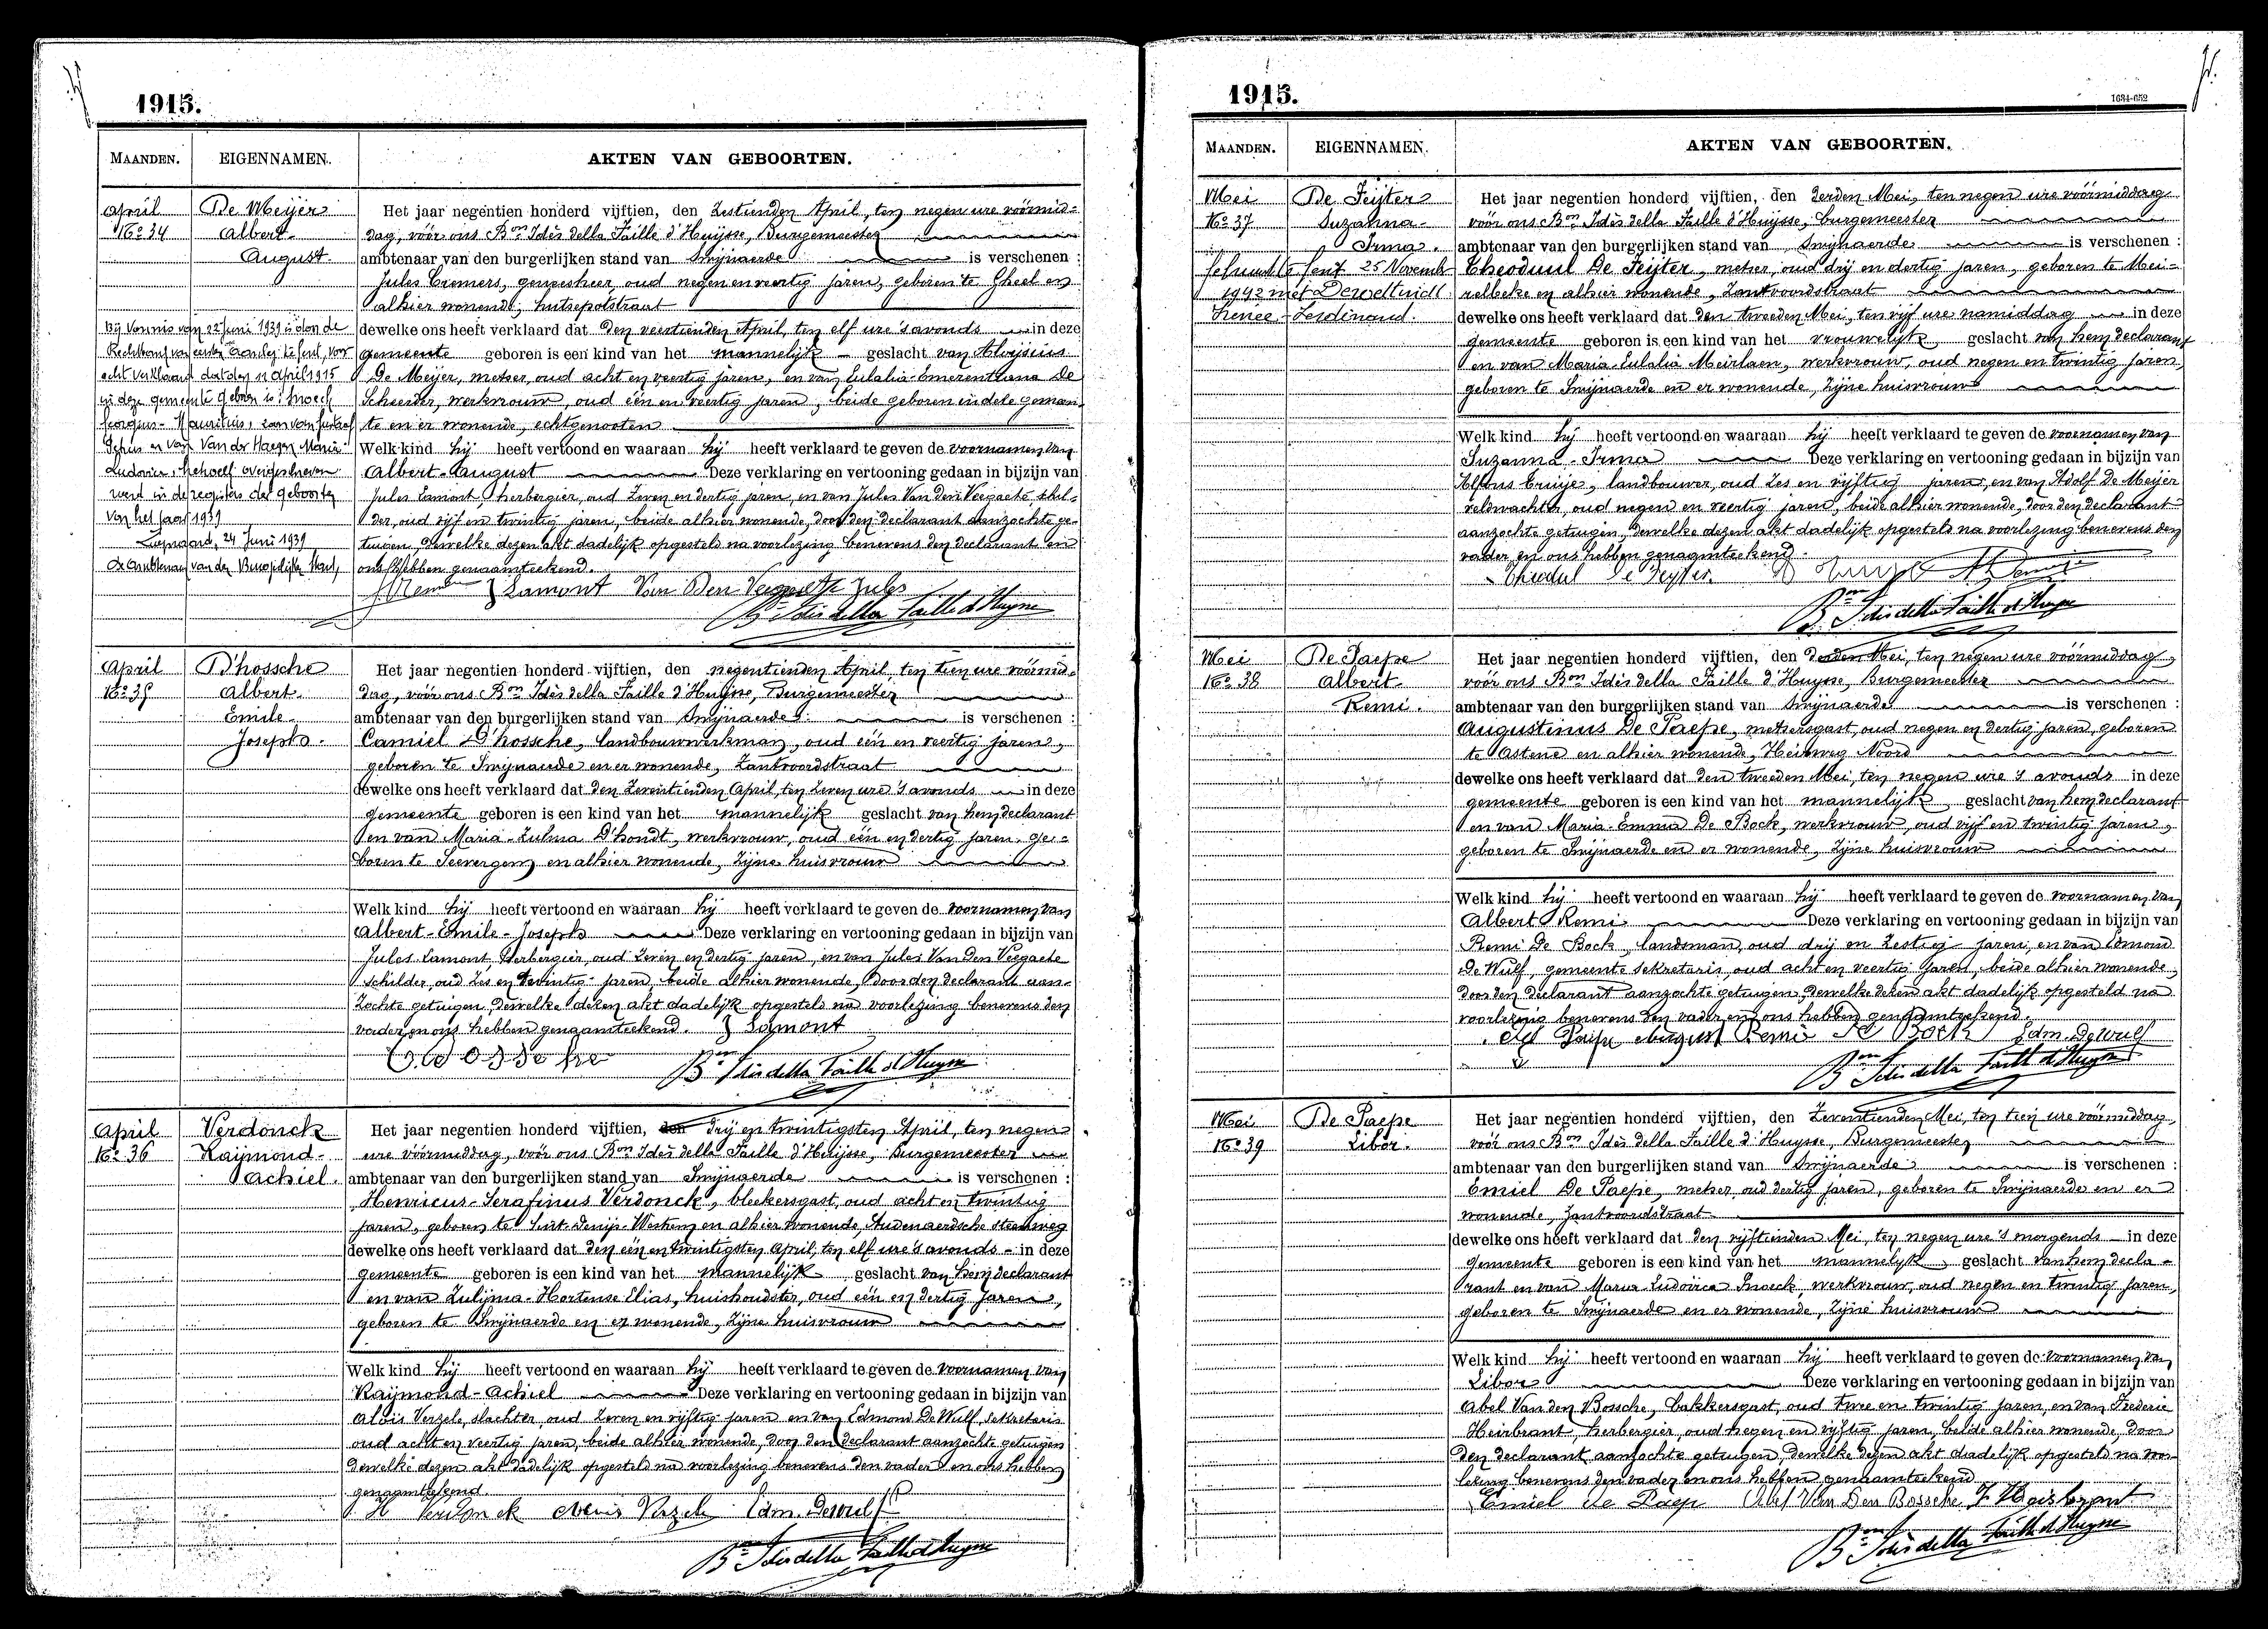 1915.
MAANDEN. EIGENNAMEN. AKTEN VAN GEBOORTEN.
April
No 34
De Meijer
Albert-
August.
Bij Vonnis van 22 Juni 1939 is door de
Rechtbank van eersten aanleg te Gent, voor
echt verklaard dat den 11 April 1915
in deze gemeente geboren is: Snoeck
Georgius-Mauritius, zoon van Gustaaf
en van Van der Haegen Maria
Ludovica, behoeft overgeschreven
werd in de registers der geboorten
van het jaar 1939
24 Juni 1939
De Ambtenaar van den Burgerlijken Stand,
Het jaar negentien honderd vijftien, den Zestienden April, ten negen ure vóórmid=
dag, vóór ons Bon Idès della Faille d'Huijsse, Burgemeester
ambtenaar van den burgerlijken stand van Swijnaerde is verschenen :
Jules Cremers, geneesheer, oud negen en veertig jaren, geboren te Gheel en
alhier wonende, hutsepotstraat
dewelke ons heeft verklaard dat den veertienden April, ten elf ure 's avonds in deze
gemeente geboren is een kind van het mannelijk geslacht van Aloijsius
De Meijer, metser, oud acht en veertig jaren, en van Eulalia-Emerentiana De
Scheerder, werkvrouw, oud één en veertig jaren, beide geboren in dele gemeen=
te en er wonende, echtgenooten
Welk kind hij heeft vertoond en waaraan hij heeft verklaard te geven de voornamen van
Albert-August Deze verklaring en vertooning gedaan in bijzijn van
Jules Lamont, herbergier, oud Zeven en dertig jaren, en van Jules Van den Veegaete, schil=
der, oud vijf en twintig jaren, beide alhier wonende, door den declarant aanzochte ge=
tuigen, dewelke dezen akt dadelijk opgesteld na voorlezing benevens den declarant en
ons hebben genaamteekend.
J Lamont Van Den Veegaete Jules
Bon Idès della Faille d'Huysse
April
No 35
D'hossche
Albert-
Emile-
Joseph.
Het jaar negentien honderd vijftien, den negentienden April, ten tien ure vóórmid=
dag, vóór ons Bon Idès della Faille d'Huijsse, Burgemeester
ambtenaar van den burgerlijken stand van Swijnaerde is verschenen :
Camiel D'hossche, landbouwwerkman, oud één en veertig jaren,
geboren te Swijnaerde en er wonende, Zantvoordstraat
dewelke ons heeft verklaard dat den Zeventienden April, ten Zeven ure 's avonds in deze
gemeente geboren is een kind van het mannelijk geslacht van hem declarant
en van Maria-Zulma D'hondt, werkvrouw, oud één en dertig jaren, ge=
boren te Seevergem en alhier wonende, Zijne huisvrouw
Welk kind hij heeft vertoond en waaraan hij heeft verklaard te geven de voornamen van
Albert-Emile-Joseph Deze verklaring en vertooning gedaan in bijzijn van
Jules Lamont, Herbergier, oud Zeven en dertig jaren, en van Jules Van Den Veegaete
schilder, oud Zes en twintig jaren, beide alhier wonende, door den declarant aan=
zochte getuigen, dewelke dezen akt dadelijk opgesteld na voorlezing benevens den
vader en ons hebben genaamteekend. J Lamont
C D'hossche
Bon Idès della Faille d'Huysse
April
No 36
Verdonck
Raijmond-
Achiel.
Het jaar negentien honderd vijftien, den drij en twintigsten April, ten negen
ure vóórmiddag, vóór ons Bon Idès della Faille d'Huijsse, Burgemeester
ambtenaar van den burgerlijken stand van Swijnaerde is verschenen :
Henricus-Serafinus Verdonck, bleekersgast, oud acht en twintig
jaren, geboren te Sint-Denijs-Westrem en alhier wonende, Audenaerdsche steenweg
dewelke ons heeft verklaard dat den één en twintigsten April, ten elf ure 's avonds - in deze
gemeente geboren is een kind van het mannelijk geslacht van hem declarant
en van Zulijma-Hortense Elias, huishoudster, oud één en dertig jaren,
geboren te Swijnaerde en er wonende, Zijne huisvrouw
Welk kind hij heeft vertoond en waaraan hij heeft verklaard te geven de voornamen van
Raijmond-Achiel Deze verklaring en vertooning gedaan in bijzijn van
Aloïs Verzele, slachter, oud Zeven en vijftig jaren en van Edmond De Wulf, sekretaris
oud acht en veertig jaren, beide alhier wonende, door den declarant aanzochte getuigen
dewelke dezen akt dadelijk opgesteld na voorlezing benevens den vader en ons hebben
genaamteekend
H Verdonck Verzele Edm. Dewulf
Bon Idès della Faille d'Huysse
1915.
1634-652
MAANDEN. EIGENNAMEN. AKTEN VAN GEBOORTEN.
Mei
No 37
De Feijter
Suzanna-
Irma.
Gehuwd te Gent 25 November
1942 met Deweltuidt
Irenee-Ferdinand.
Het jaar negentien honderd vijftien, den derden Mei, ten negen ure vóórmiddag
vóór ons Bon Idès della Faille d'Huijsse, burgemeester
ambtenaar van den burgerlijken stand van Swijnaerde is verschenen :
Theoduul De Feijter, metser, oud drij en dertig jaren, geboren te Mei=
relbeke en alhier wonende, Zantvoordstraat
dewelke ons heeft verklaard dat den tweeden Mei, ten vijf ure namiddag in deze
gemeente geboren is een kind van het vrouwelijk geslacht van hem declarant
en van Maria-Eulalia Meirlaen, werkvrouw, oud negen en twintig jaren
geboren te Swijnaerde en er wonende, Zijne huisvrouw
Welk kind hij heeft vertoond en waaraan hij heeft verklaard te geven de voornamen van
Suzanna-Irma Deze verklaring en vertooning gedaan in bijzijn van
Alfons Truije, landbouwer, oud Zes en vijftig jaren, en van Adolf De Meijer
veldwachter, oud negen en veertig jaren, beide alhier wonende, door den declarant
aanzochte getuigen, dewelke dezen akt dadelijk opgesteld na voorlezing benevens den
vader en ons hebben genaamteekend.
Theodul De Feyter
Bon Idès della Faille d'Huysse
Mei
No 38
De Paepe
Albert-
Remi.
Het jaar negentien honderd vijftien, den derden Mei, ten negen ure vóórmiddag,
vóór ons Bon Idès della Faille d'Huysse, Burgemeester
ambtenaar van den burgerlijken stand van Swijnaerde is verschenen :
Augustinus De Paepe, metsersgast, oud negen en dertig jaren, geboren
te Astene en alhier wonende, Heirweg Noord
dewelke ons heeft verklaard dat den tweeden Mei, ten negen ure 's avonds in deze
gemeente geboren is een kind van het mannelijk geslacht van hem declarant
en van Maria-Emma De Bock, werkvrouw, oud vijf en twintig jaren,
geboren te Swijnaerde en er wonende, Zijne huisvrouw
Welk kind hij heeft vertoond en waaraan hij heeft verklaard te geven de voornamen van
Albert Remi Deze verklaring en vertooning gedaan in bijzijn van
Remi De Bock, landsman, oud drij en Zestig jaren, en van Edmond
De Wulf, gemeente sekretaris, oud acht en veertig jaren, beide alhier wonende,
door den declarant aanzochte getuigen, dewelke dezen akt dadelijk opgesteld na
voorlezing benevens den vader en ons hebben genaamteekend.
De Paepe August Remi De Bock Edm. Dewulf
Bon Idès della Faille d'Huysse
Mei
No 39
De Paepe
Libor.
Het jaar negentien honderd vijftien, den Zeventienden Mei, ten tien ure vóórmiddag
vóór ons Bon Idès della Faille d'Huysse, Burgemeester
ambtenaar van den burgerlijken stand van Swijnaerde is verschenen :
Emiel De Paepe, metser, oud dertig jaren, geboren te Swijnaerde en er
wonende, Zantvoordstraat
dewelke ons heeft verklaard dat den vijftienden Mei, ten negen ure 's morgends in deze
gemeente geboren is een kind van het mannelijk geslacht van hem decla-
rant en van Maria-Ludovica Snoeck, werkvrouw, oud negen en twintig jaren,
geboren te Swijnaerde en er wonende, Zijne huisvrouw
Welk kind hij heeft vertoond en waaraan hij heeft verklaard te geven de voornamen van
Libor Deze verklaring en vertooning gedaan in bijzijn van
Abel Van den Bossche, bakkersgast, oud twee en twintig jaren, en van Frederic
Heirbrant, herbergier, oud negen en vijftig jaren, beide alhier wonende, door
den declarant aanzochte getuigen, dewelke dezen akt dadelijk opgesteld na voor=
lezing benevens den vader en ons hebben genaamteekend
Emiel De Paep Abel Van Den Bossche F Heirbrant
Bon Idès della Faille d'Huysse